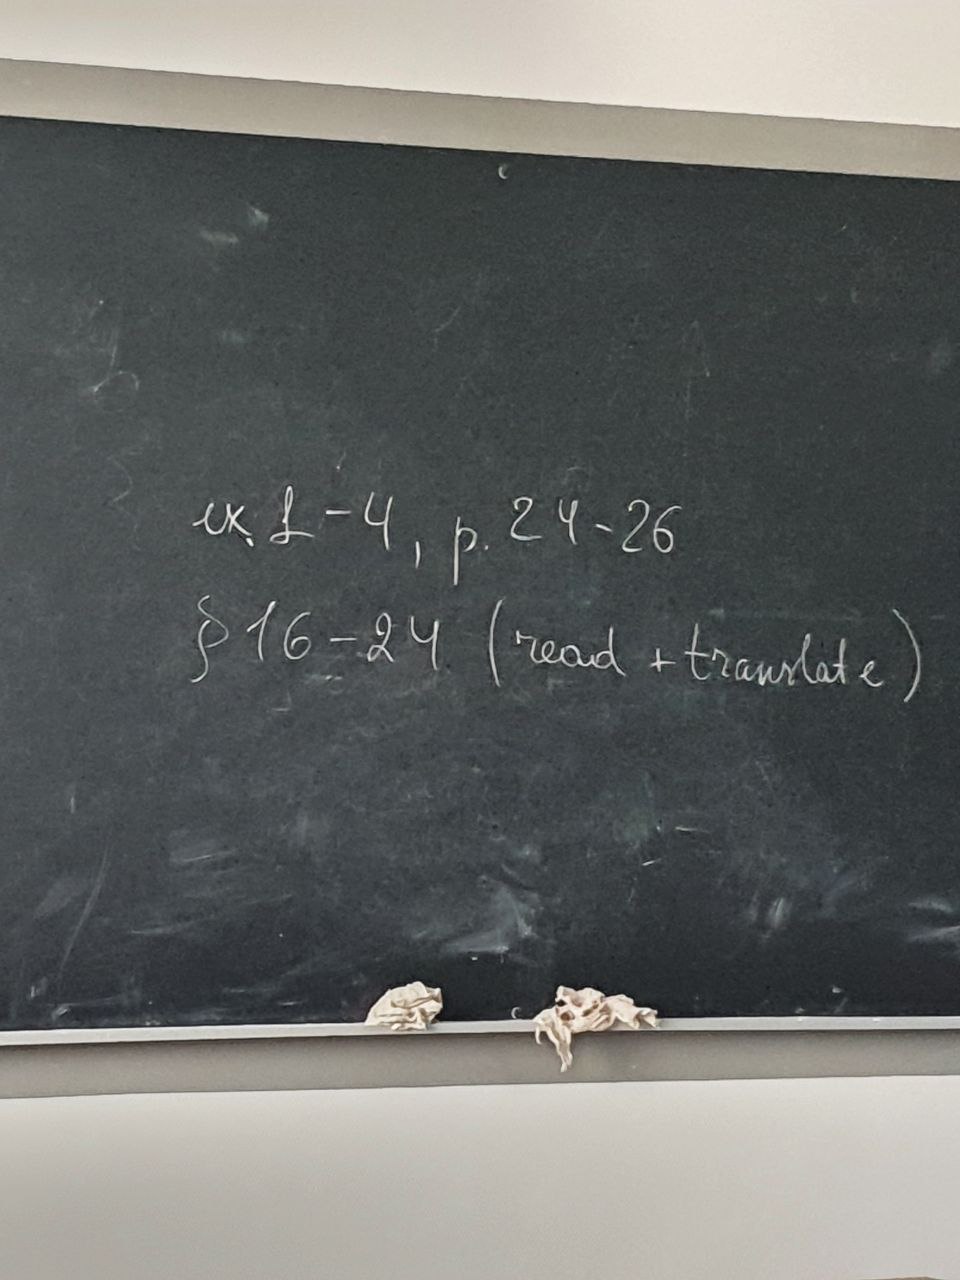 ex. 1-4, p. 24-26
§ 16-24 (read + translate)